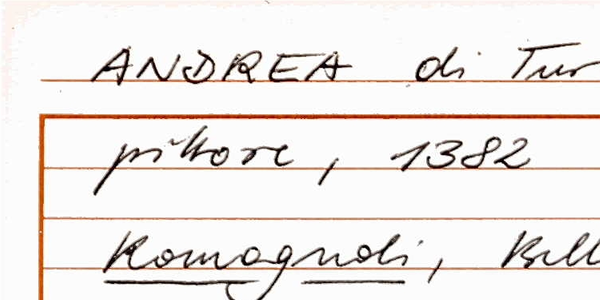 ANDREA di Tur
pittore, 1382
Romagnoli, Bell